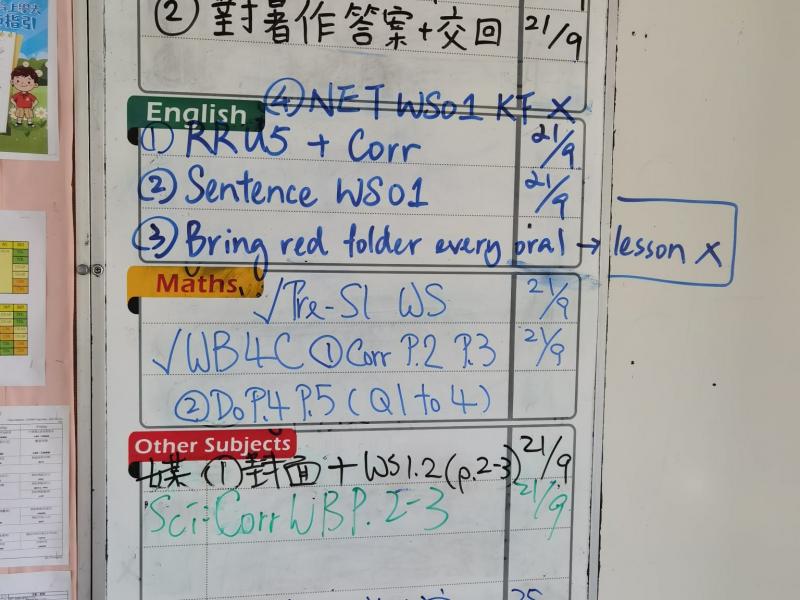 ② 對暑作答案+交回 21/9
English ④ NET WS01 KF X
① RR U5 + Corr 21/9
② Sentence WS01 21/9
③ Bring red folder every oral → lesson X
Maths
√Pre-S1 WS 21/9
√WB4C ① Corr P.2 P.3 21/9
② Do P.4 P.5 (Q1 to 4)
Other Subjects
① 封面 + WS1.2 (p.2-3) 21/9
Sci: Corr WB P. 2-3 21/9
25